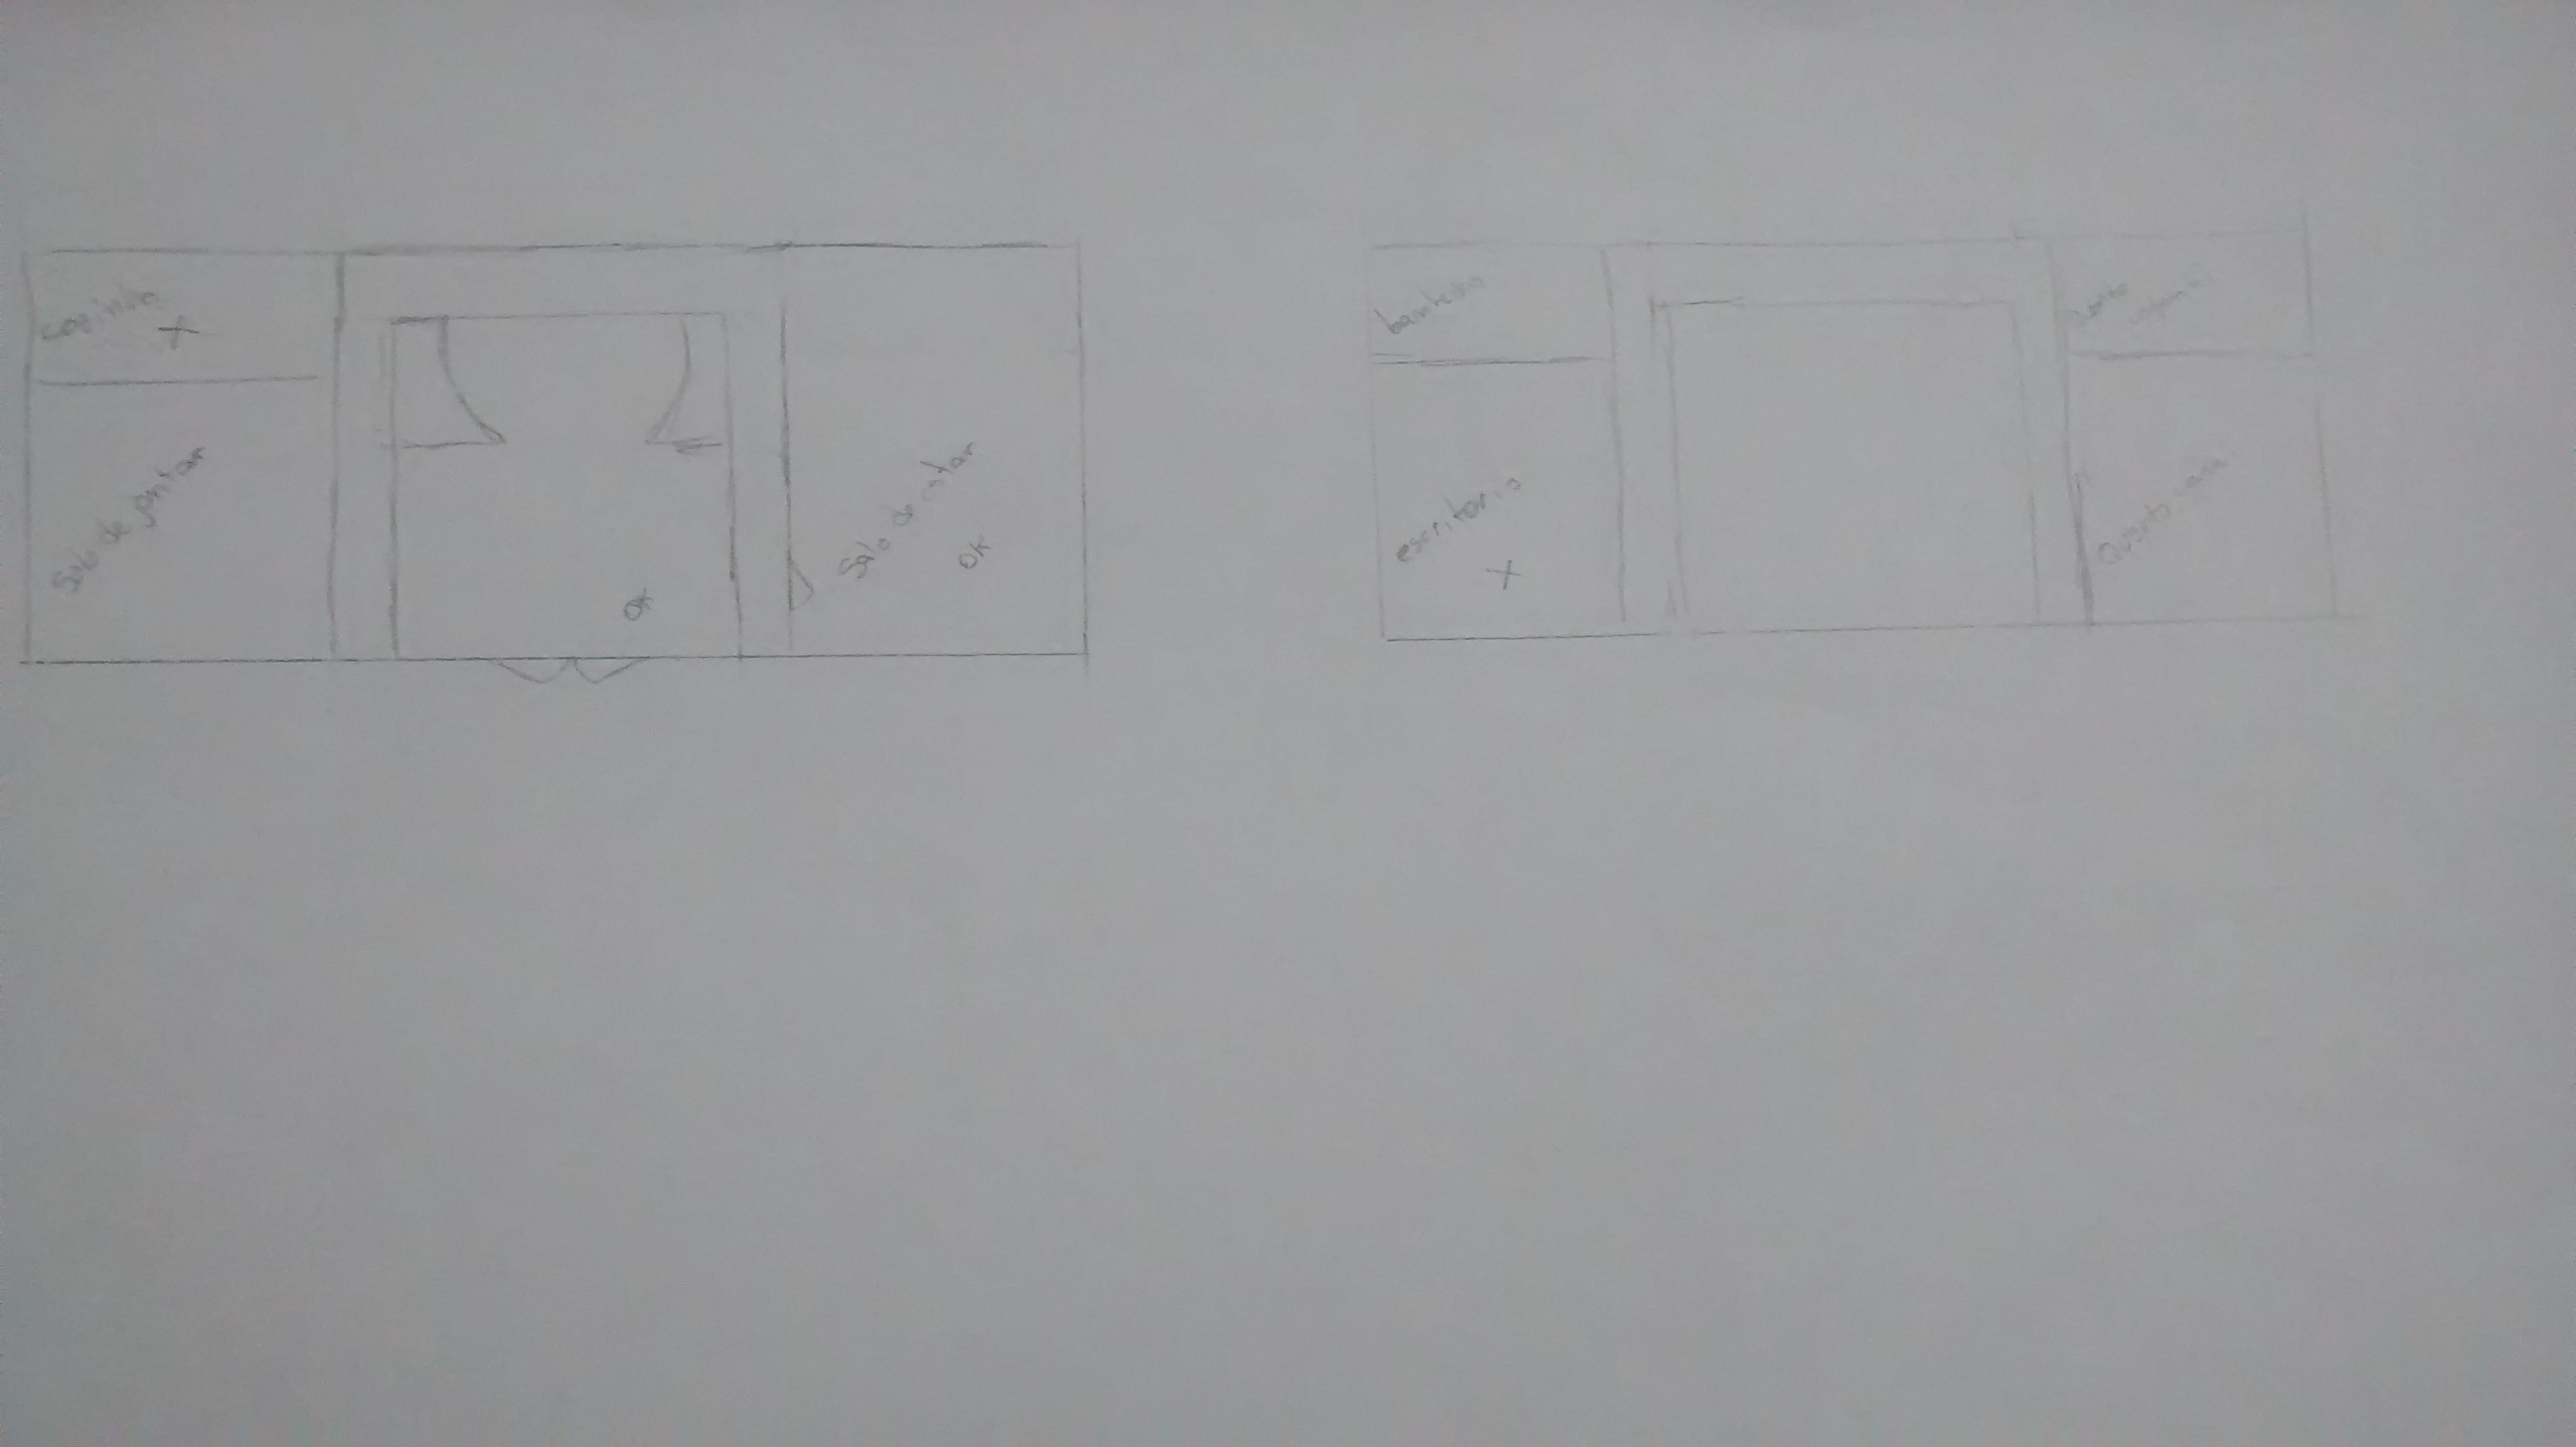 cozinha
X
Sala de jantar
OK
Sala de estar
OK
banheiro
escritorio
X
Quarto
Quarto